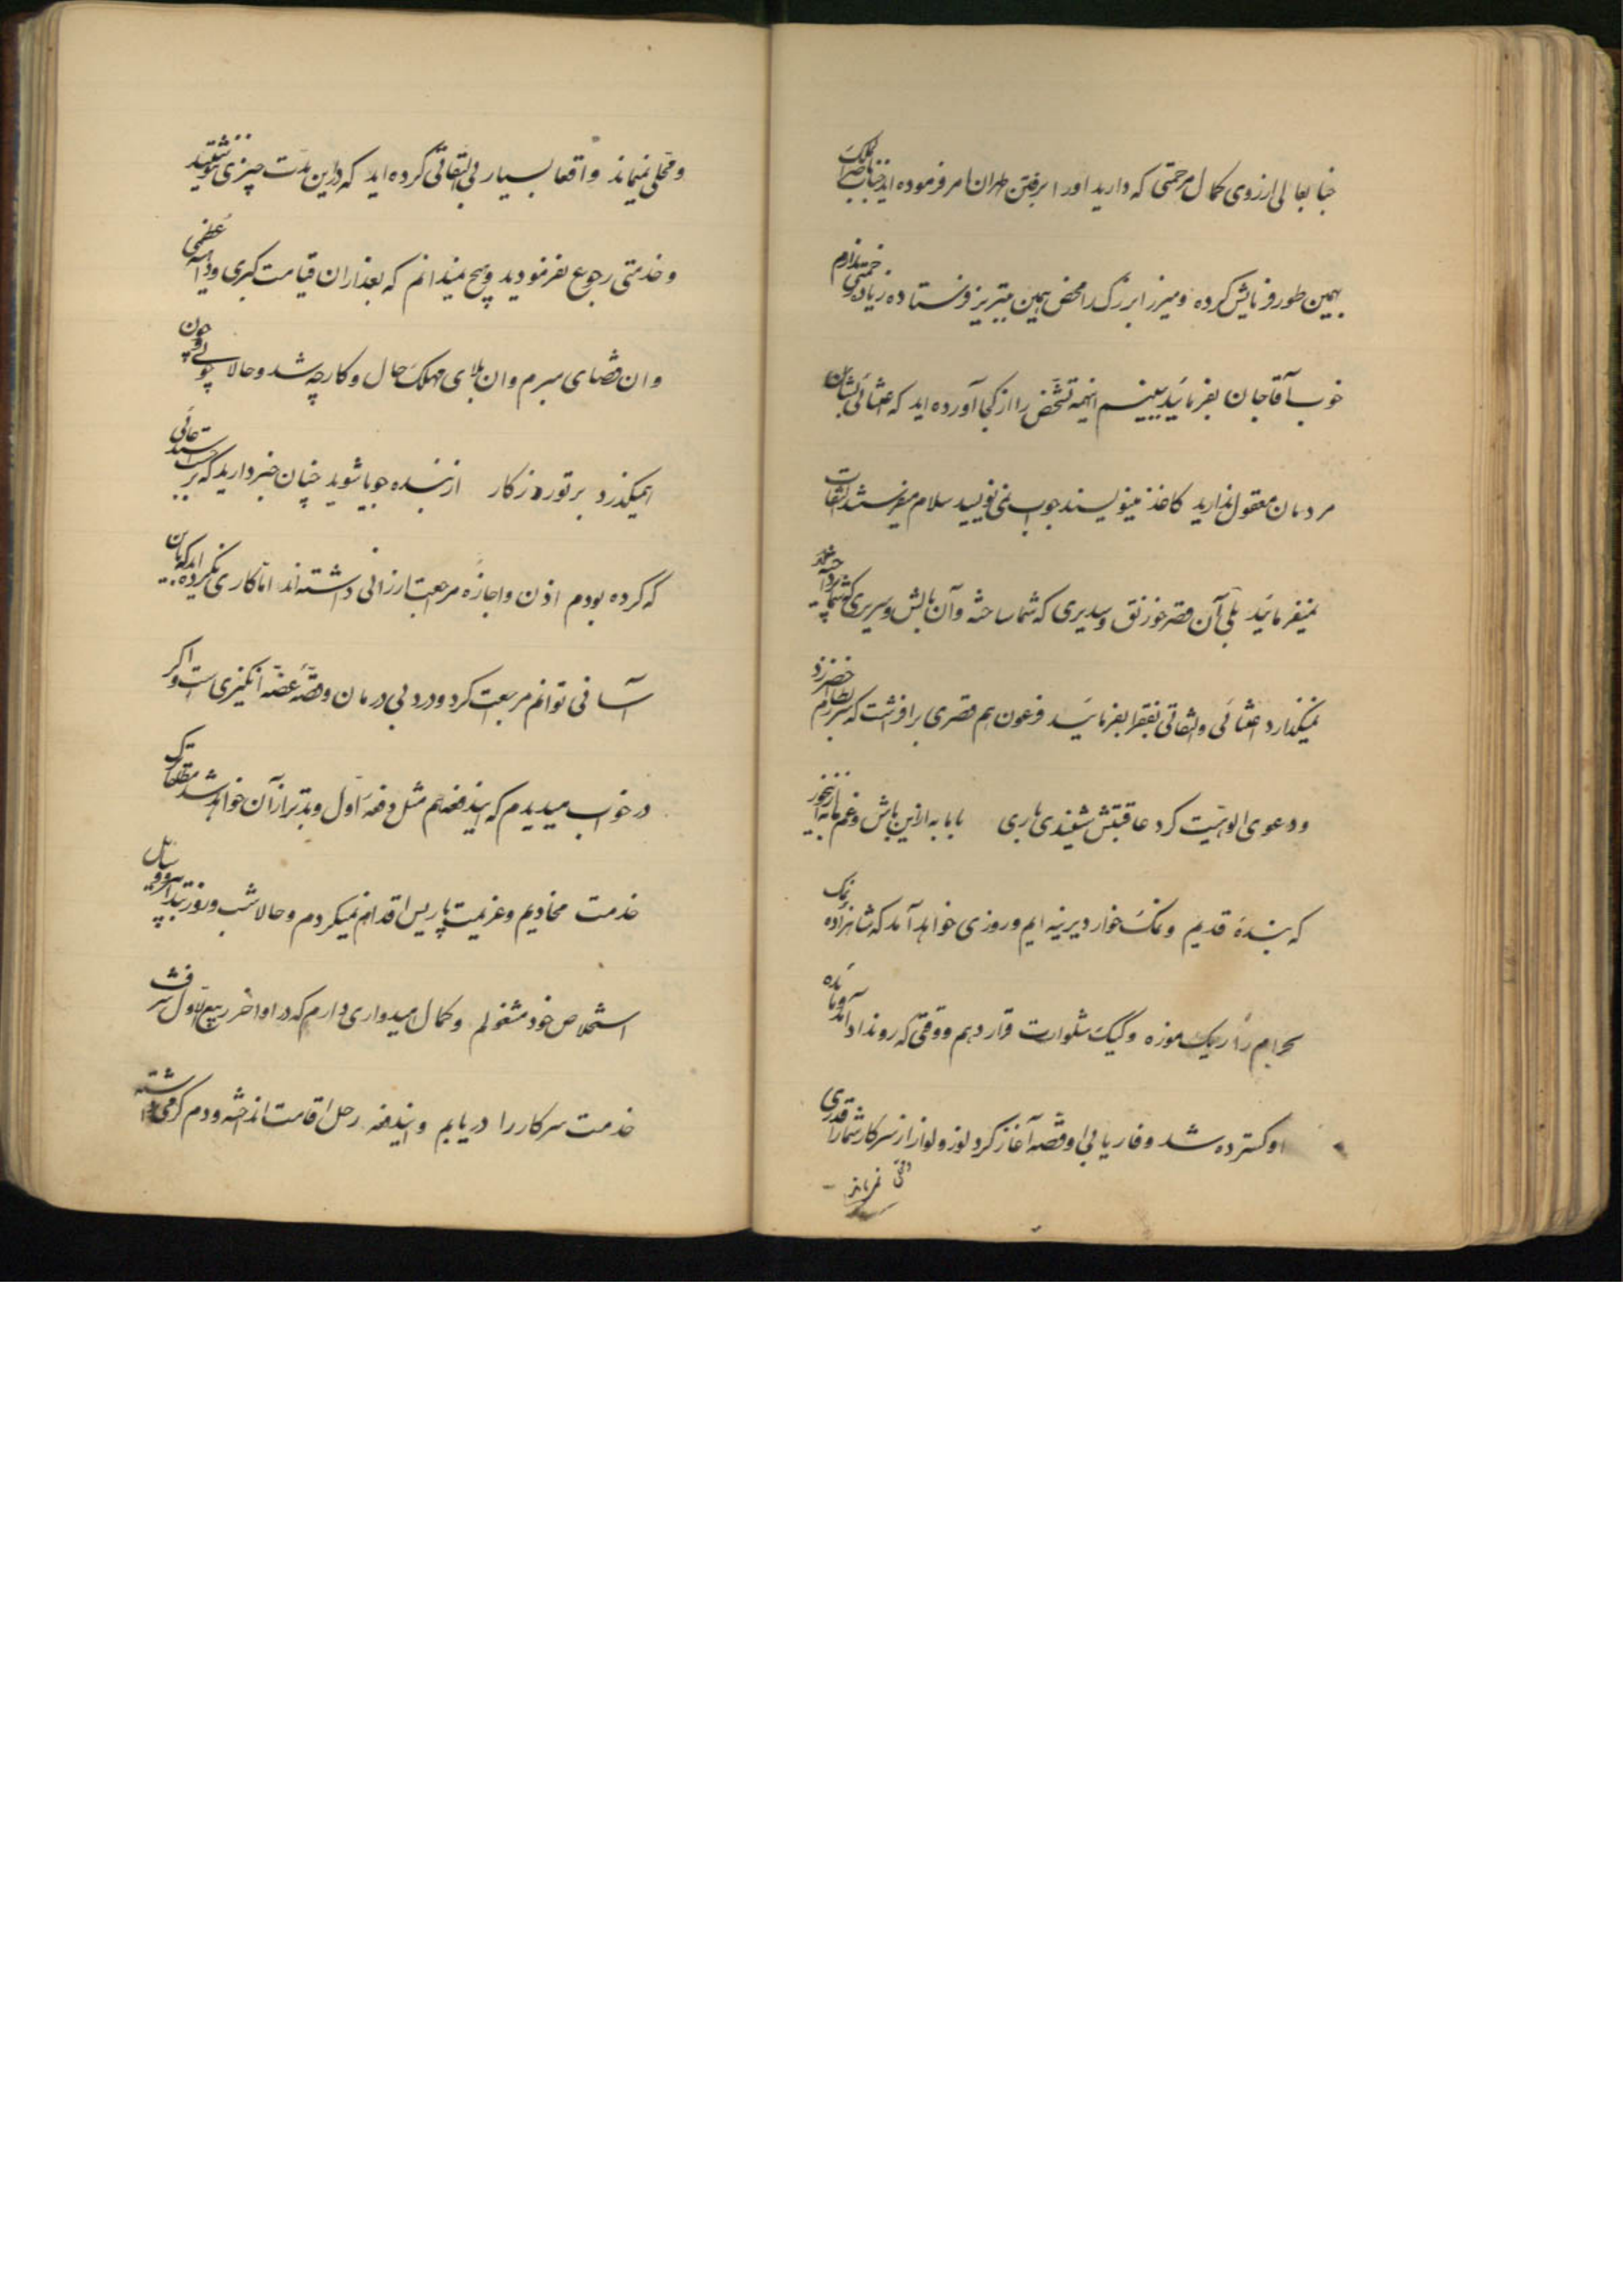 جنابعالی از روی کمال مرحمتی که دارید او را برفتن طهران امر فرموده‌اید جناب ناصر الملک
بهمین طور فرمایش کرده و میرزا بزرگ را محض همین بتبریز فرستاده زیاده زحمتی ندارم
خوب آقاجان بفرمائید ببینم اینهمه تشخص را از کجا آورده‌اید که اعتنائی بشان
مردمان معقول ندارید کاغذ مینویسند جواب نمی‌نویسید سلام میفرستند التفات
نمیفرمائید بلی آن قصر خورنق و سدیری که شما ساخته و آن بالش و سریری که شما
نمیگذارد اعتنائی و التفاتی بفقرا بفرمائید فرعون هم قصری برافراشت که سر بطارم اخضر زد
و دعوی الوهیت کرد عاقبتش شنیدی باری بابا به ازین باش و غم ما به ازین خور
که بندهٔ قدیم و نمک خوار دیرینه‌ایم و روزی خواهد آمد که شاهزاده نمک
بحرام را در یک موزه و کیک شلوارت قرار دهم و وقتی که روندا آید و مائده
او گسترده شد و فاریابی او قصه آغاز کرد لوز و لوازز از سرکار شما را قدری
فرمایند
و محلی نمیماند واقعا بسیار بی التفاتی کرده‌اید که در این مدت چیزی ننوشتید
و خدمتی رجوع نفرمودید و هیچ نمیدانم که بعد از ان قیامت کبری و داهیه عظمی
و ان قضای مبرم و ان بلای مهلک حال و کار چه شد و حالا چونی و چون
همیگذرد بر تو روزکار از بنده جویا شوید چنان خبر دارید که بر حسب استدعائی
که کرده بودم اذن و اجازهٔ مراجعت ارزانی داشته‌اند اما کاری نکرده‌اند که بان
آسانی توانم مراجعت کرد و درد بی درمان و قصهٔ غصه انگیزی است و اگر
در خواب میدیدم که ایندفعه هم مثل دفعه اول و بدتر از آن خواهد شد مطلقا ترک
خدمت مخادیم و عزیمت پاریس اقدام نمیکردم و حالا شب و روز بتدابیر و وسایل
استخلاص خود مشغولم و کمال امیدواری دارم که در اواخر ربیع الاول شرف
خدمت سرکار را دریابم و ایندفعه رحل اقامت انداخته و دم گرمی داشته